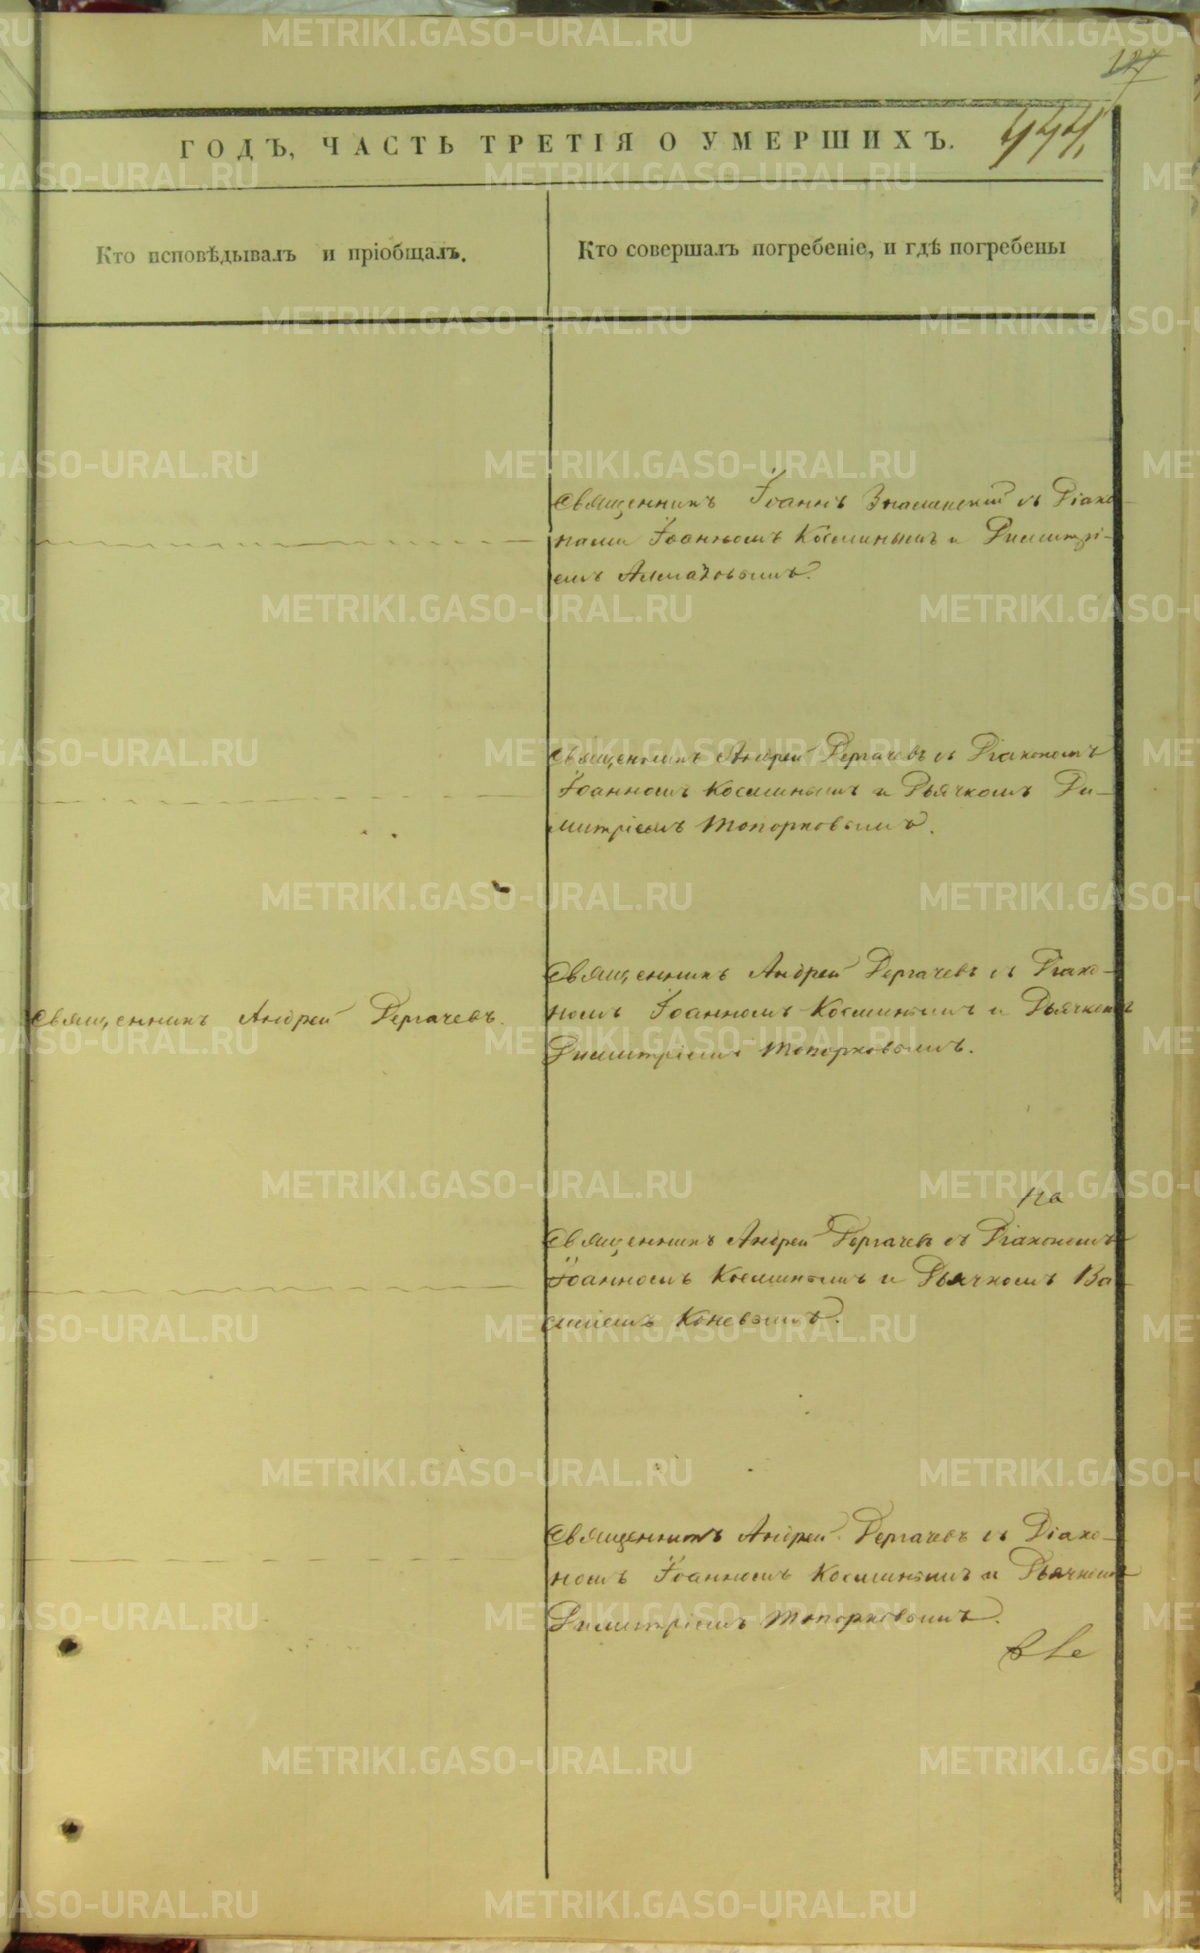 127
444
ГОДЪ, ЧАСТЬ ТРЕТІЯ О УМЕРШИХЪ.
Кто исповѣдывалъ и пріобщалъ.
Кто совершалъ погребеніе, и гдѣ погребены
Священникъ Іоаннъ Знаменскій съ Діако-
нами Іоанномъ Косминымъ и Димитрі-
емъ Алмазовымъ.
Священникъ Андрей Дергачевъ съ Діакономъ
Іоанномъ Косминымъ и Дьячкомъ Ди-
митріемъ Топорковымъ.
Священникъ Андрей Дергачевъ.
Священникъ Андрей Дергачевъ съ Діако-
номъ Іоанномъ Косминымъ и Дьячкомъ
Димитріемъ Топорковымъ.
на
Священникъ Андрей Дергачевъ съ Діакономъ
Іоанномъ Косминымъ и Дьячкомъ Ва-
силіемъ Коневымъ.
Священникъ Андрей Дергачевъ съ Діако-
номъ Іоанномъ Косминымъ и Дьячкомъ
Димитріемъ Топорковымъ.
METRIKI.GASO-URAL.RU